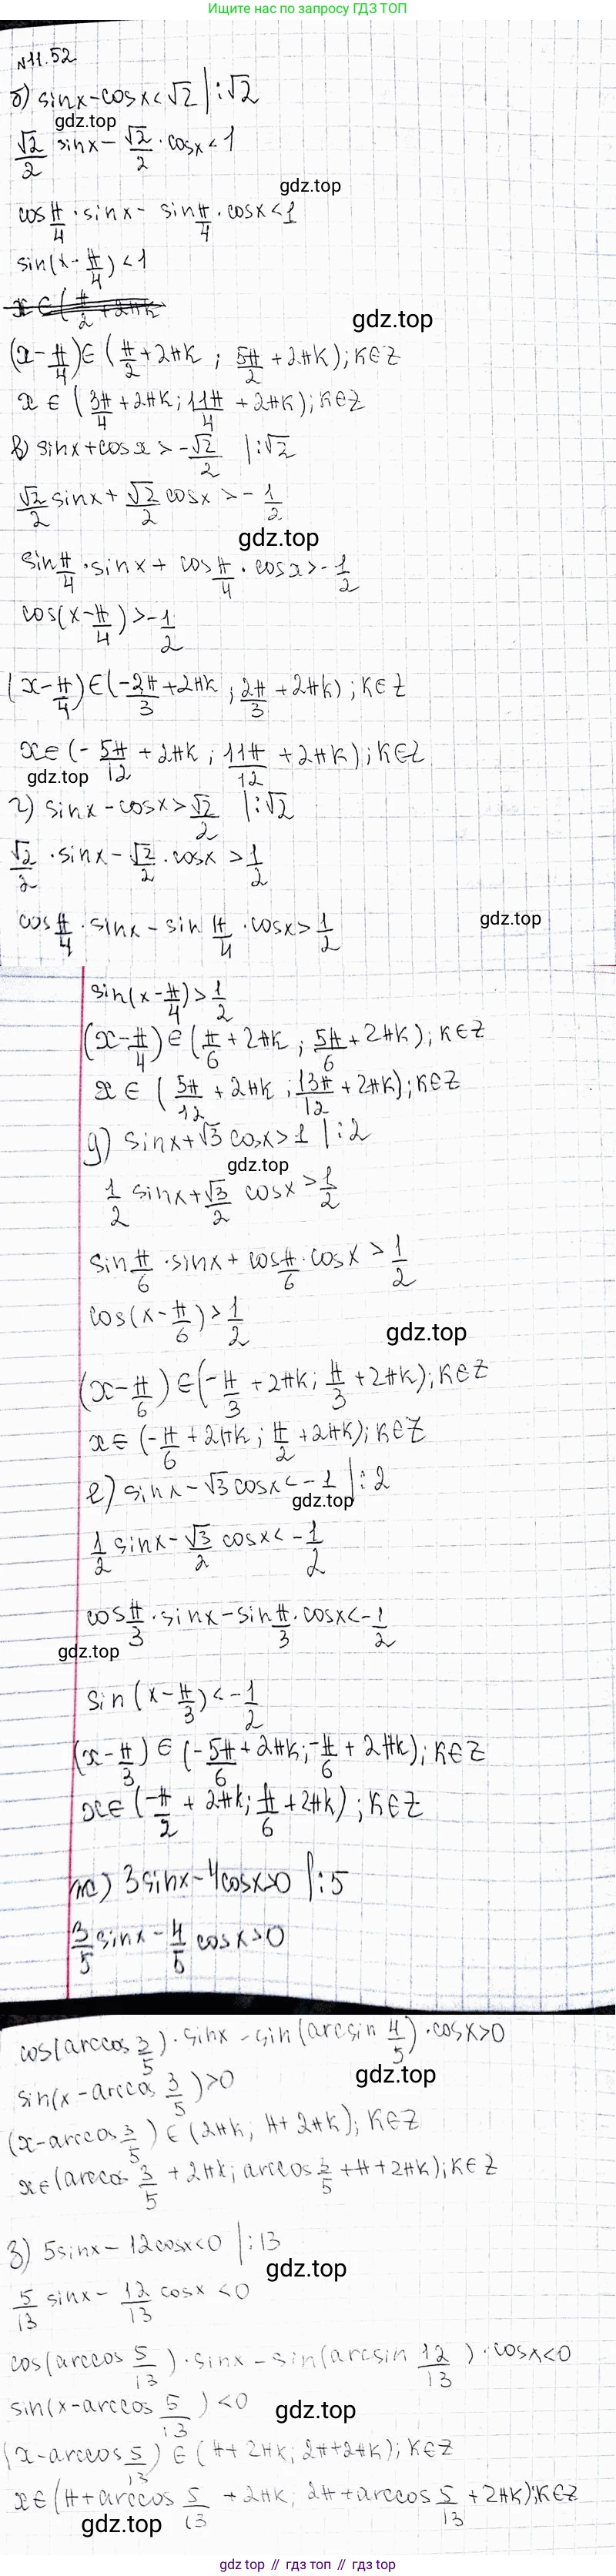 Ищите нас по запросу ГДЗ ТОП
№11.52
б) sinx-cosx<√2 |:√2
gdz.top
√2/2 sinx - √2/2 · cosx < 1
gdz.top
cos π/4 · sinx - sin π/4 · cosx < 1
sin(x - π/4) < 1
gdz.top
(x - π/4) ∈ (π/2 + 2πk ; 5π/2 + 2πk); k∈Z
x ∈ (3π/4 + 2πk; 11π/4 + 2πk); k∈Z
в) sinx+cosx > -√2/2 |:√2
√2/2 sinx + √2/2 cosx > -1/2
gdz.top
sin π/4 · sinx + cos π/4 · cosx > -1/2
cos(x - π/4) > -1/2
(x - π/4) ∈ (-2π/3 + 2πk ; 2π/3 + 2πk) ; k∈Z
x∈ (- 5π/12 + 2πk ; 11π/12 + 2πk); k∈Z
gdz.top
г) sinx - cosx > √2/2 |:√2
√2/2 · sinx - √2/2 · cosx > 1/2
cos π/4 · sinx - sin π/4 · cosx > 1/2
gdz.top
sin(x - π/4) > 1/2
(x - π/4) ∈ (π/6 + 2πk ; 5π/6 + 2πk); k∈Z
x ∈ (5π/12 + 2πk ; 13π/12 + 2πk); k∈Z
д) sinx+√3 cosx > 1 |:2
gdz.top
1/2 sinx + √3/2 cosx > 1/2
sin π/6 · sinx + cos π/6 · cosx > 1/2
cos(x - π/6) > 1/2
gdz.top
(x - π/6) ∈ (-π/3 + 2πk; π/3 + 2πk); k∈Z
x ∈ (-π/6 + 2πk ; π/2 + 2πk); k∈Z
е) sinx - √3 cosx < -1 |:2
gdz.top
1/2 sinx - √3/2 cosx < -1/2
cos π/3 · sinx - sin π/3 · cosx < -1/2
gdz.top
sin (x - π/3) < -1/2
(x - π/3) ∈ (-5π/6 + 2πk; -π/6 + 2πk); k∈Z
x∈ (-π/2 + 2πk; π/6 + 2πk) ; k∈Z
ж) 3sinx-4cosx>0 |:5
3/5 sinx - 4/5 cosx > 0
cos(arccos 3/5) · sinx - sin(arcsin 4/5) · cosx>0
gdz.top
sin(x - arccos 3/5) >0
(x-arccos 3/5) ∈ (2πk; π+2πk); k∈Z
x∈(arccos 3/5 + 2πk; arccos 3/5 + π + 2πk); k∈Z
з) 5sinx - 12cosx<0 |:13
gdz.top
5/13 sinx - 12/13 cosx < 0
cos(arccos 5/13) · sinx - sin(arcsin 12/13) · cosx<0
sin(x-arccos 5/13) < 0
gdz.top
(x-arccos 5/13) ∈ (π+2πk; 2π+2πk); k∈Z
x∈(π+arccos 5/13 + 2πk; 2π+arccos 5/13 + 2πk); k∈Z
gdz.top
gdz.top // гдз.топ // гдз.top